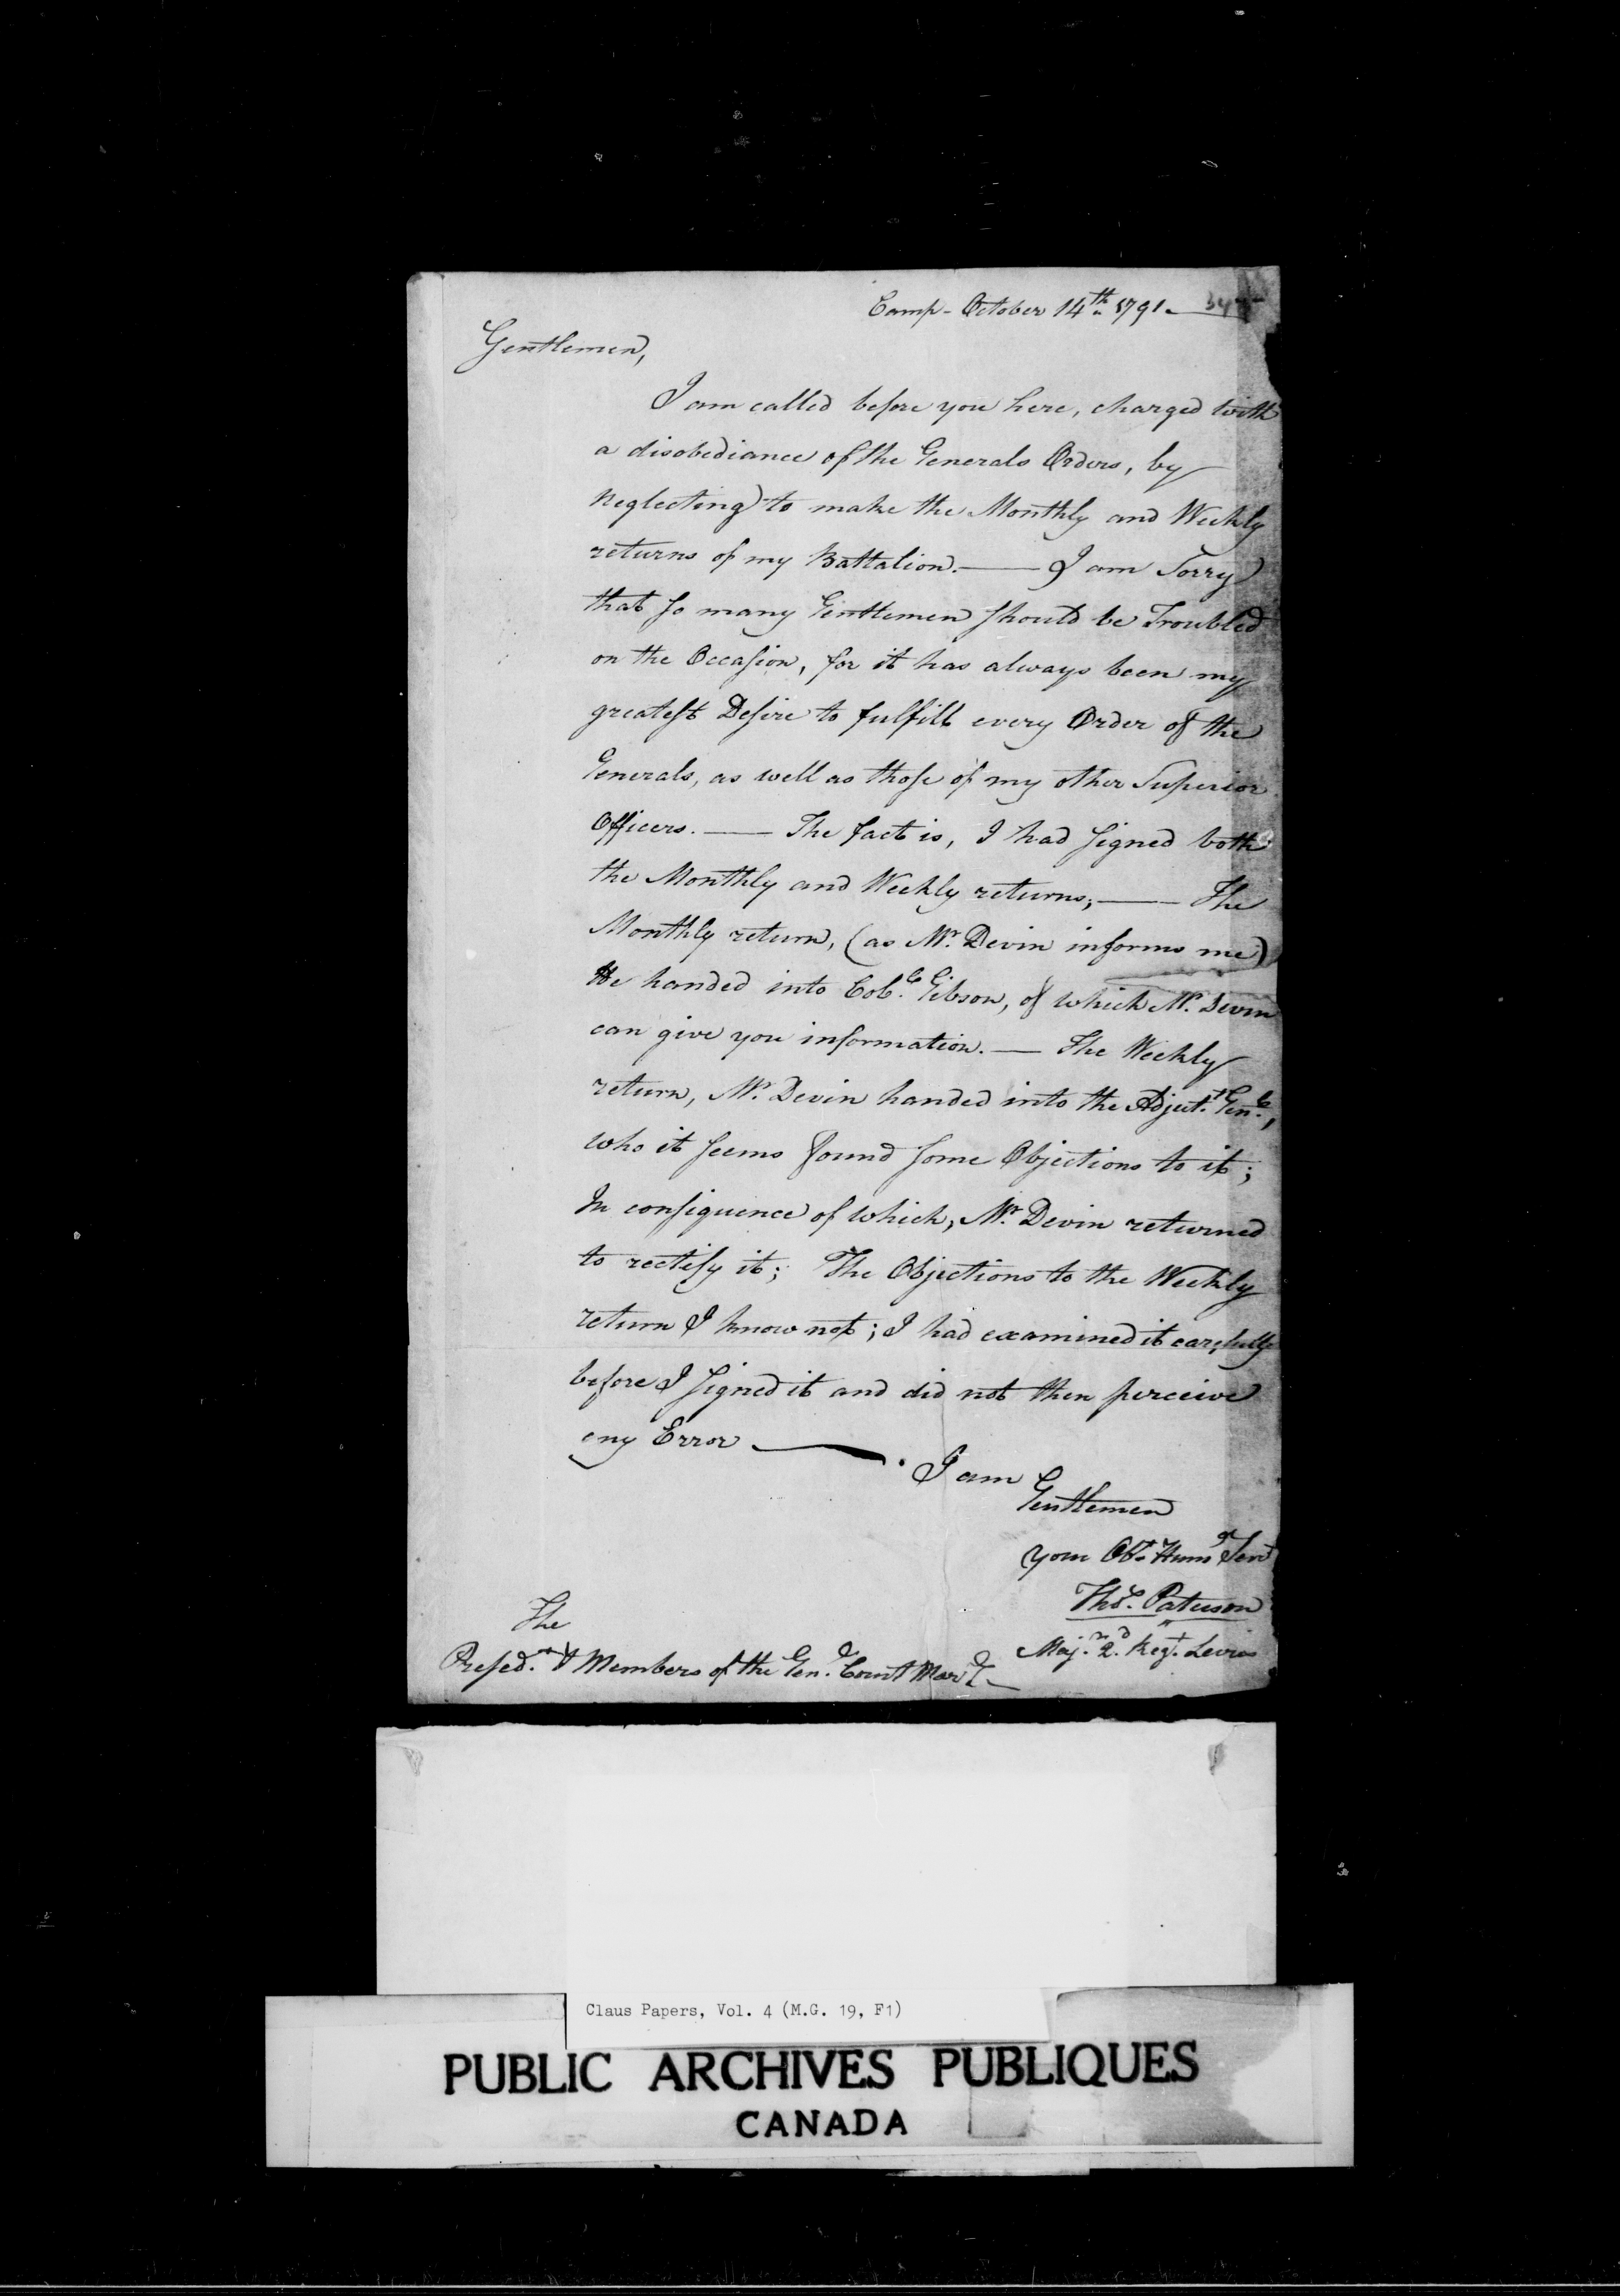 Camp - October 14th 1791 -
Gentlemen,
I am called before you here, charged with
a disobediance of the Generals Orders, by
Neglecting to make the Monthly and Weekly
returns of my Battalion. — I am Sorry
that so many Gentlemen should be Troubled
on the Occasion, for it has always been my
greatest Desire to fulfill every Order of the
Generals, as well as those of my other Superior
Officers. — The fact is, I had signed both
the Monthly and Weekly returns; — The
Monthly return, (as Mr. Devin informs me)
He handed into Col. Gibson, of which Mr. Devin
can give you information. — The Weekly
return, Mr. Devin handed into the Adjut. Genl.,
who it seems found some Objections to it;
In consiquence of which, Mr. Devin returned
to rectify it; The Objections to the Weekly
return I know not; I had examined it carefully
before I signed it and did not then perceive
any Error — . I am
Gentlemen
your Obt. Humb Servt
Thos. Paterson
Maj. 2nd Regt. Levies
The
Presed.nt & Members of the Genl. Court Marl. —
Claus Papers, Vol. 4 (M.G. 19, F1)
PUBLIC ARCHIVES PUBLIQUES
CANADA